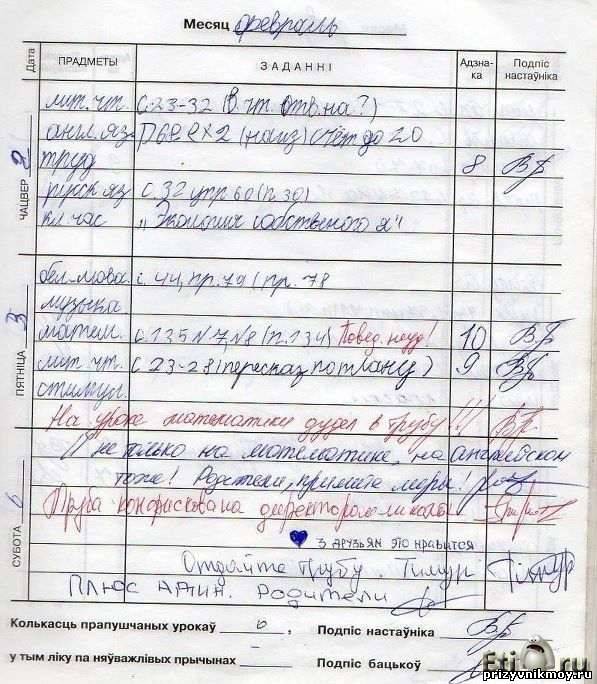 Месяц февраль
Дата ПРАДМЕТЫ ЗАДАННІ Адзнака Подпіс настаўніка
ЧАЦВЕР 2
лит. чт. с. 23-32 (В. чт. отв. на ?)
англ. яз.
труд 8
с. 32 упр. 60 (п. 30)
кл. час "Экология собственного я"
ПЯТНІЦА 3
бел. мова с. 44, пр. 79 (пр. 78
музыка
матем. с. 135 N 7, N 8 (п. 134) Повед. неуд! 10
лит. чт. с. 23-28 (пересказ по плану) 9
На уроке математики дудел в трубу!!!
СУБОТА
И не только на математике, на английском
тоже! Родители, примите меры!
Труба конфискована директором школы!
3 друзьям это нравится
Отдайте трубу. Тимур
Плюс адин. родители
Колькасць прапушчаных урокаў , Подпіс настаўніка
у тым ліку па няўважлівых прычынах Подпіс бацькоў
Eti ru
prizyvnikmoy.ru